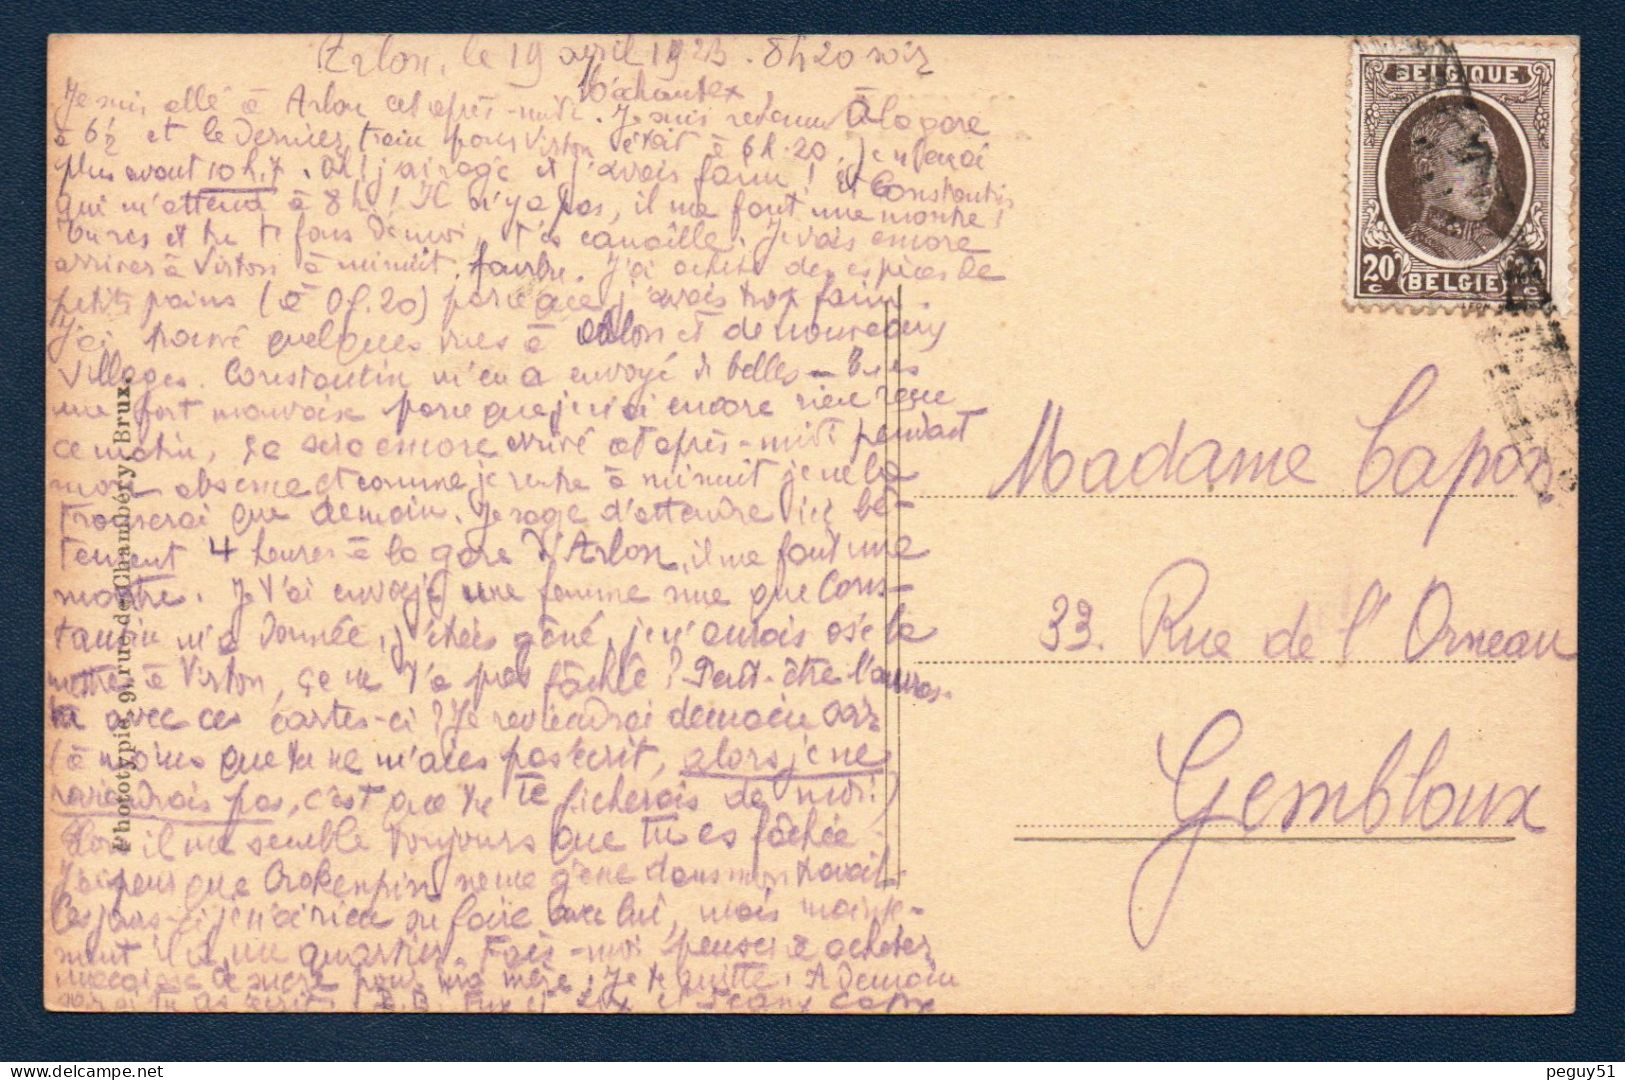 Arlon, le 19 avril 1923. 8h20 soir
Méchante,
Je suis allé à Arlon cet après-midi. Je suis revenu à la gare
à 6½ et le dernier train pour Virton était à 6h.20, je n'en ai
plus avant 10 h.7. Oh! j'ai ragé et j'avais faim! Et Constantin
qui m'attend à 8h! Il n'y a pas, il me faut une montre!
et tu te fous de moi, t'es canaille. Je vais encore
arriver à Virton à minuit. J'ai acheté des espèces de
petits pains (à 0f.20) parce que j'avais trop faim.
J'ai trouvé quelques vues à Arlon et de nouveaux
villages. Constantin m'en a envoyé de belles - Tu es
une fort mauvaise parce que je n'ai encore rien reçu
ce matin, ça sera encore arrivé cet après-midi pendant
mon absence et comme je rentre à minuit je ne la
trouverai que demain. Je rage d'attendre ici bê-
tement 4 heures à la gare d'Arlon, il me faut une
montre. Je t'ai envoyé une femme nue que Cons-
tantin m'a donnée, j'étais gêné, je n'aurais osé la
mettre à Virton, ça ne t'a pas fâchée? Peut-être l'auras-
tu avec ces cartes-ci? Je reviendrai demain soir
(à moins que tu ne m'aies pas écrit, alors je ne
reviendrais pas, c'est que tu te ficherais de moi!)
Non il me semble toujours que tu es fâchée
J'ai peur que ne me gêne dans mon travail.
Ces jours-ci je n'ai rien su faire avec lui, mais mainte-
nant il a un quartier. Fais-moi penser à acheter
de sucre pour ma mère. Je te quitte. A demain
BELGIQUE
20 c
BELGIE
Madame Capon
33. Rue de l'Orneau
Gembloux
Phototypie, 9, rue de Chambéry, Brux.
peguy51